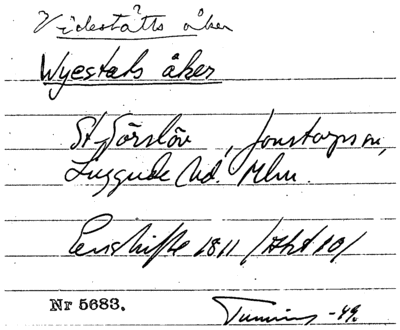 Videstätts åker
Wyestads åker
St. Görslöv, Jonstorps sn,
Luggude hd. Mlm.
Enskifte 1811 /Akt 10/
Nr 5683. -49.